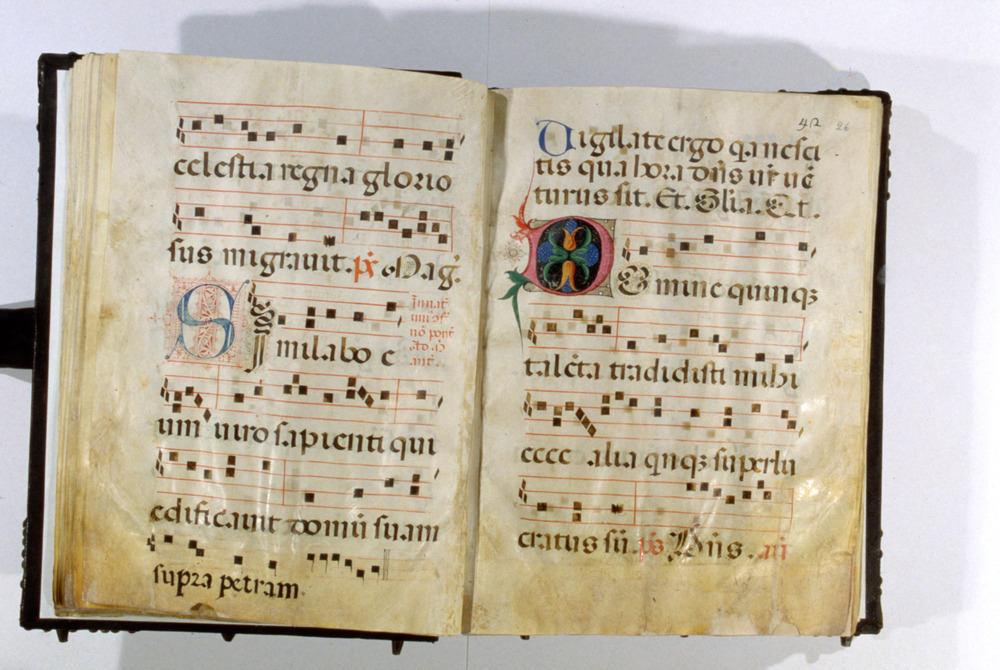 celestia regna glorio
sus migrauit. ps Mag.
Similabo e
um uiro sapienti qui
edificauit domū suam
supra petram.
42 26
Uigilate ergo qa nesci
tis qua hora dn̄s ur̄ uē
turus sit. Et. Glia. Et.
Domine quinqꝫ
talēta tradidisti mihi
ecce alia qnqꝫ superlu
cratus sū. ps